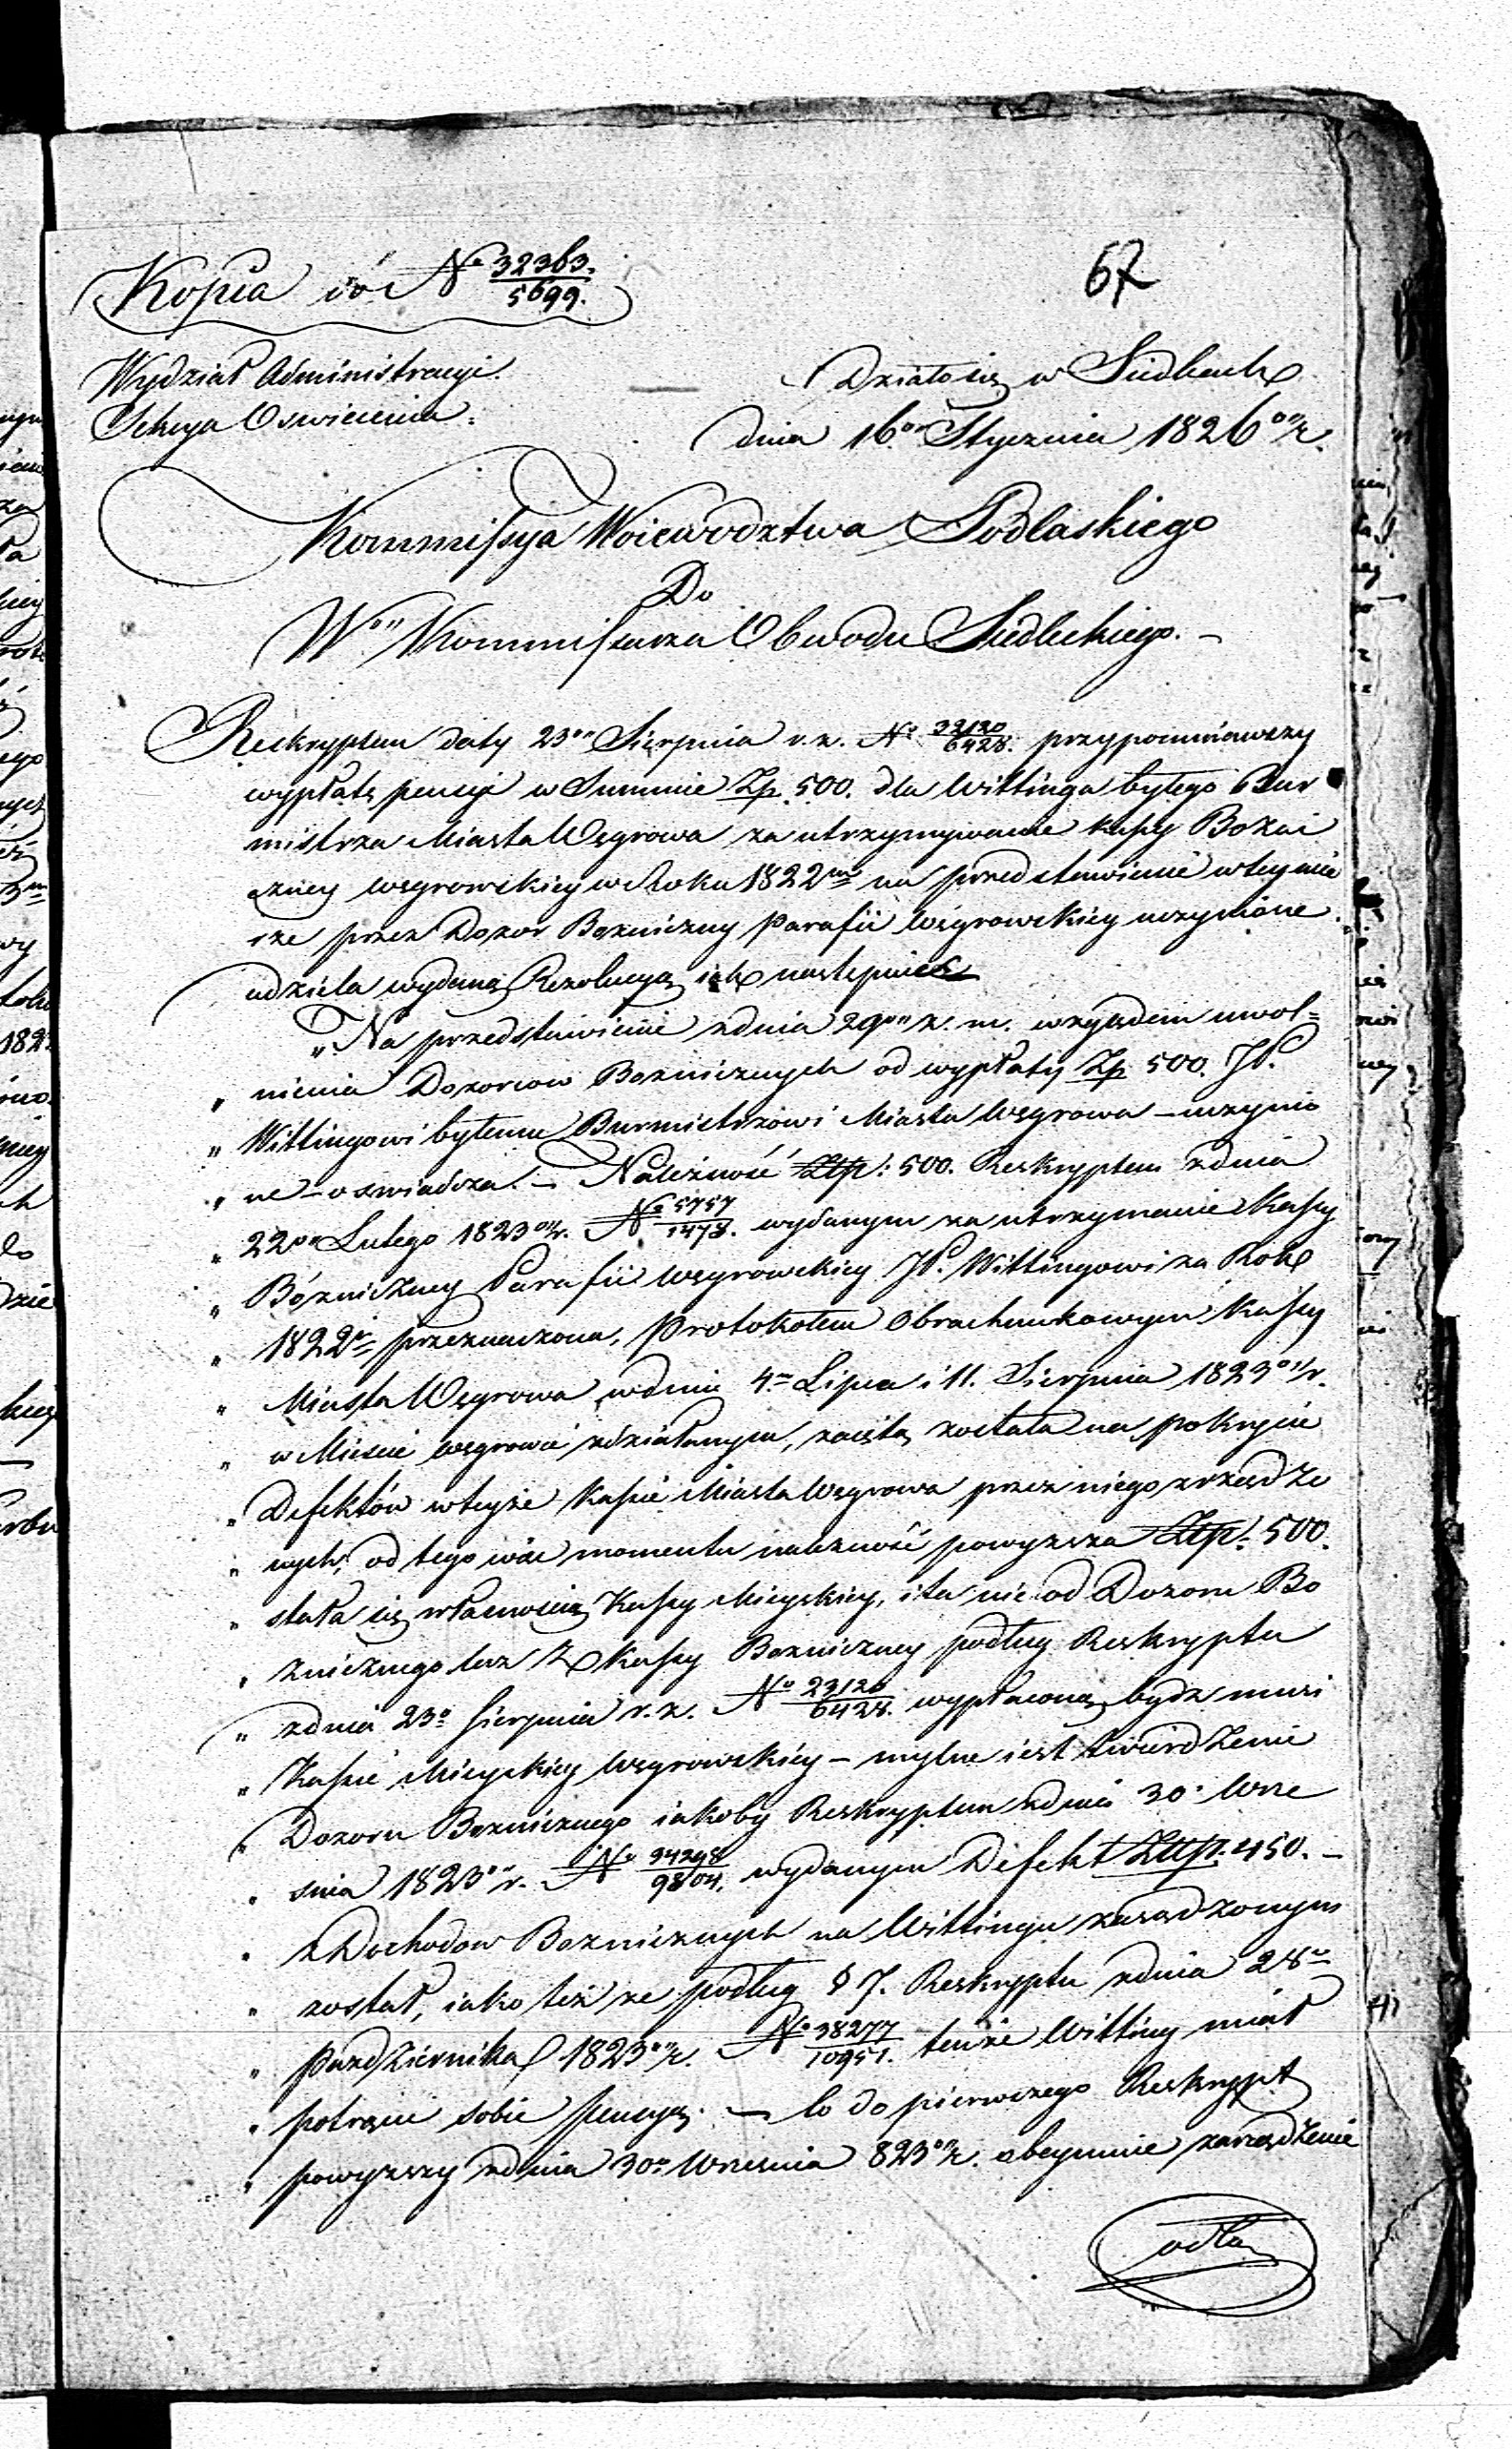 Kopia do № 32363./5699.
67
Wydział Administracyi.
Sekcya Oswiecenia.
Działo się w Siedlcach
dnia 16go Stycznia 1826go r.
Kommissya Woiewodztwa Podlaskiego
Do
Wgo Kommissarza Obwodu Siedleckiego. –
Reskryptem daty 23go Sierpnia r.z. № /6428. przypomniawszy
wypłatę pensyi w Summie Zp. 500. dla Wittinga byłego Bur
mistrza Miasta Węgrowa za utrzymywanie Kassy Bożni
czney węgrowskiey w Roku 1822m na przedstawienie w tey mie
rze przez Dozor Bożniczny Parafii Węgrowskiey uczynione
udziela wydaną Rezolucyą iak następuie
„Na przedstawienie z dnia 29go z. m. względem uwol=
„ nienia Dozorcow Bożnicznych od wypłaty Zp 500. JP.
„ Wittingowi byłemu Burmistrzowi Miasta Węgrowa – uczynio
„ ne – oswiadcza. – Należność Złp: 500. Reskryptem z dnia
„ 22go Lutego 1823go r. № 5757/1473. wydanym za utrzymanie Kassy
„ Bóżniczney Parafii węgrowskiey JP. Wittingowi za Rok
„ 1822i przeznaczona, Protokołem Obrachunkowym Kassy
„ Miasta Węgrowa w dniu 4m Lipca i 11. Sierpnia 1823go r.
„ w Miescie węgrowie zdziałanym, zaiętą została na pokrycie
„ Defektów w teyże Kassie Miasta Węgrowa przez niego zrządzo
„ nych, od tego więc momentu należność powyższa Złp. 500.
„ stała się własnością Kassy Mieyskiey, i ta nie od Dozoru Bo
„ żnicznego lecz z Kassy Bożniczney podług Reskryptu
„ z dnia 23o Sierpnia r. z. № 23120/6428. wypłaconą bydz musi
„ Kassie Mieyskiey węgrowskiey – mylne iest twierdzenie
„ Dozoru Bożnicznego iakoby Reskryptem z dnia 30o Wrze
„ snia 1823go r. № 34298/9804. wydanym Defekt Złlp. 450. –
„ z Dochodow Bożnicznych na Wittingu zarządzonym
„ został, iako też że podług § 7. Reskryptu z dnia 28o
„ Pazdziernika 1823go r. № 38277/10951. tenże Witting miał
„ potrącić sobie pensyą. – Co do pierwszego Reskrypt
„ powyższy z dnia 30o Wrzesnia 823go r. obeymuie zarządzenie